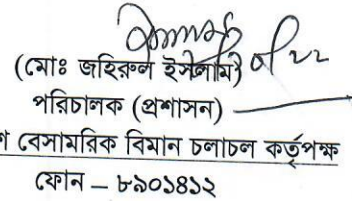 (মোঃ জহিরুল ইসলাম)
পরিচালক (প্রশাসন)
বেসামরিক বিমান চলাচল কর্তৃপক্ষ
ফোন – ৮৯০১৪১২